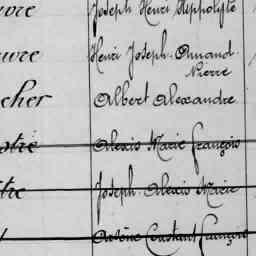 uvre Joseph Henri Hippolyte
uvre Henri Joseph Armand
Pierre
cher Albert Alexandre
otié Alexis Marie François
tie Joseph Alexis Marie
Arsène Constant François